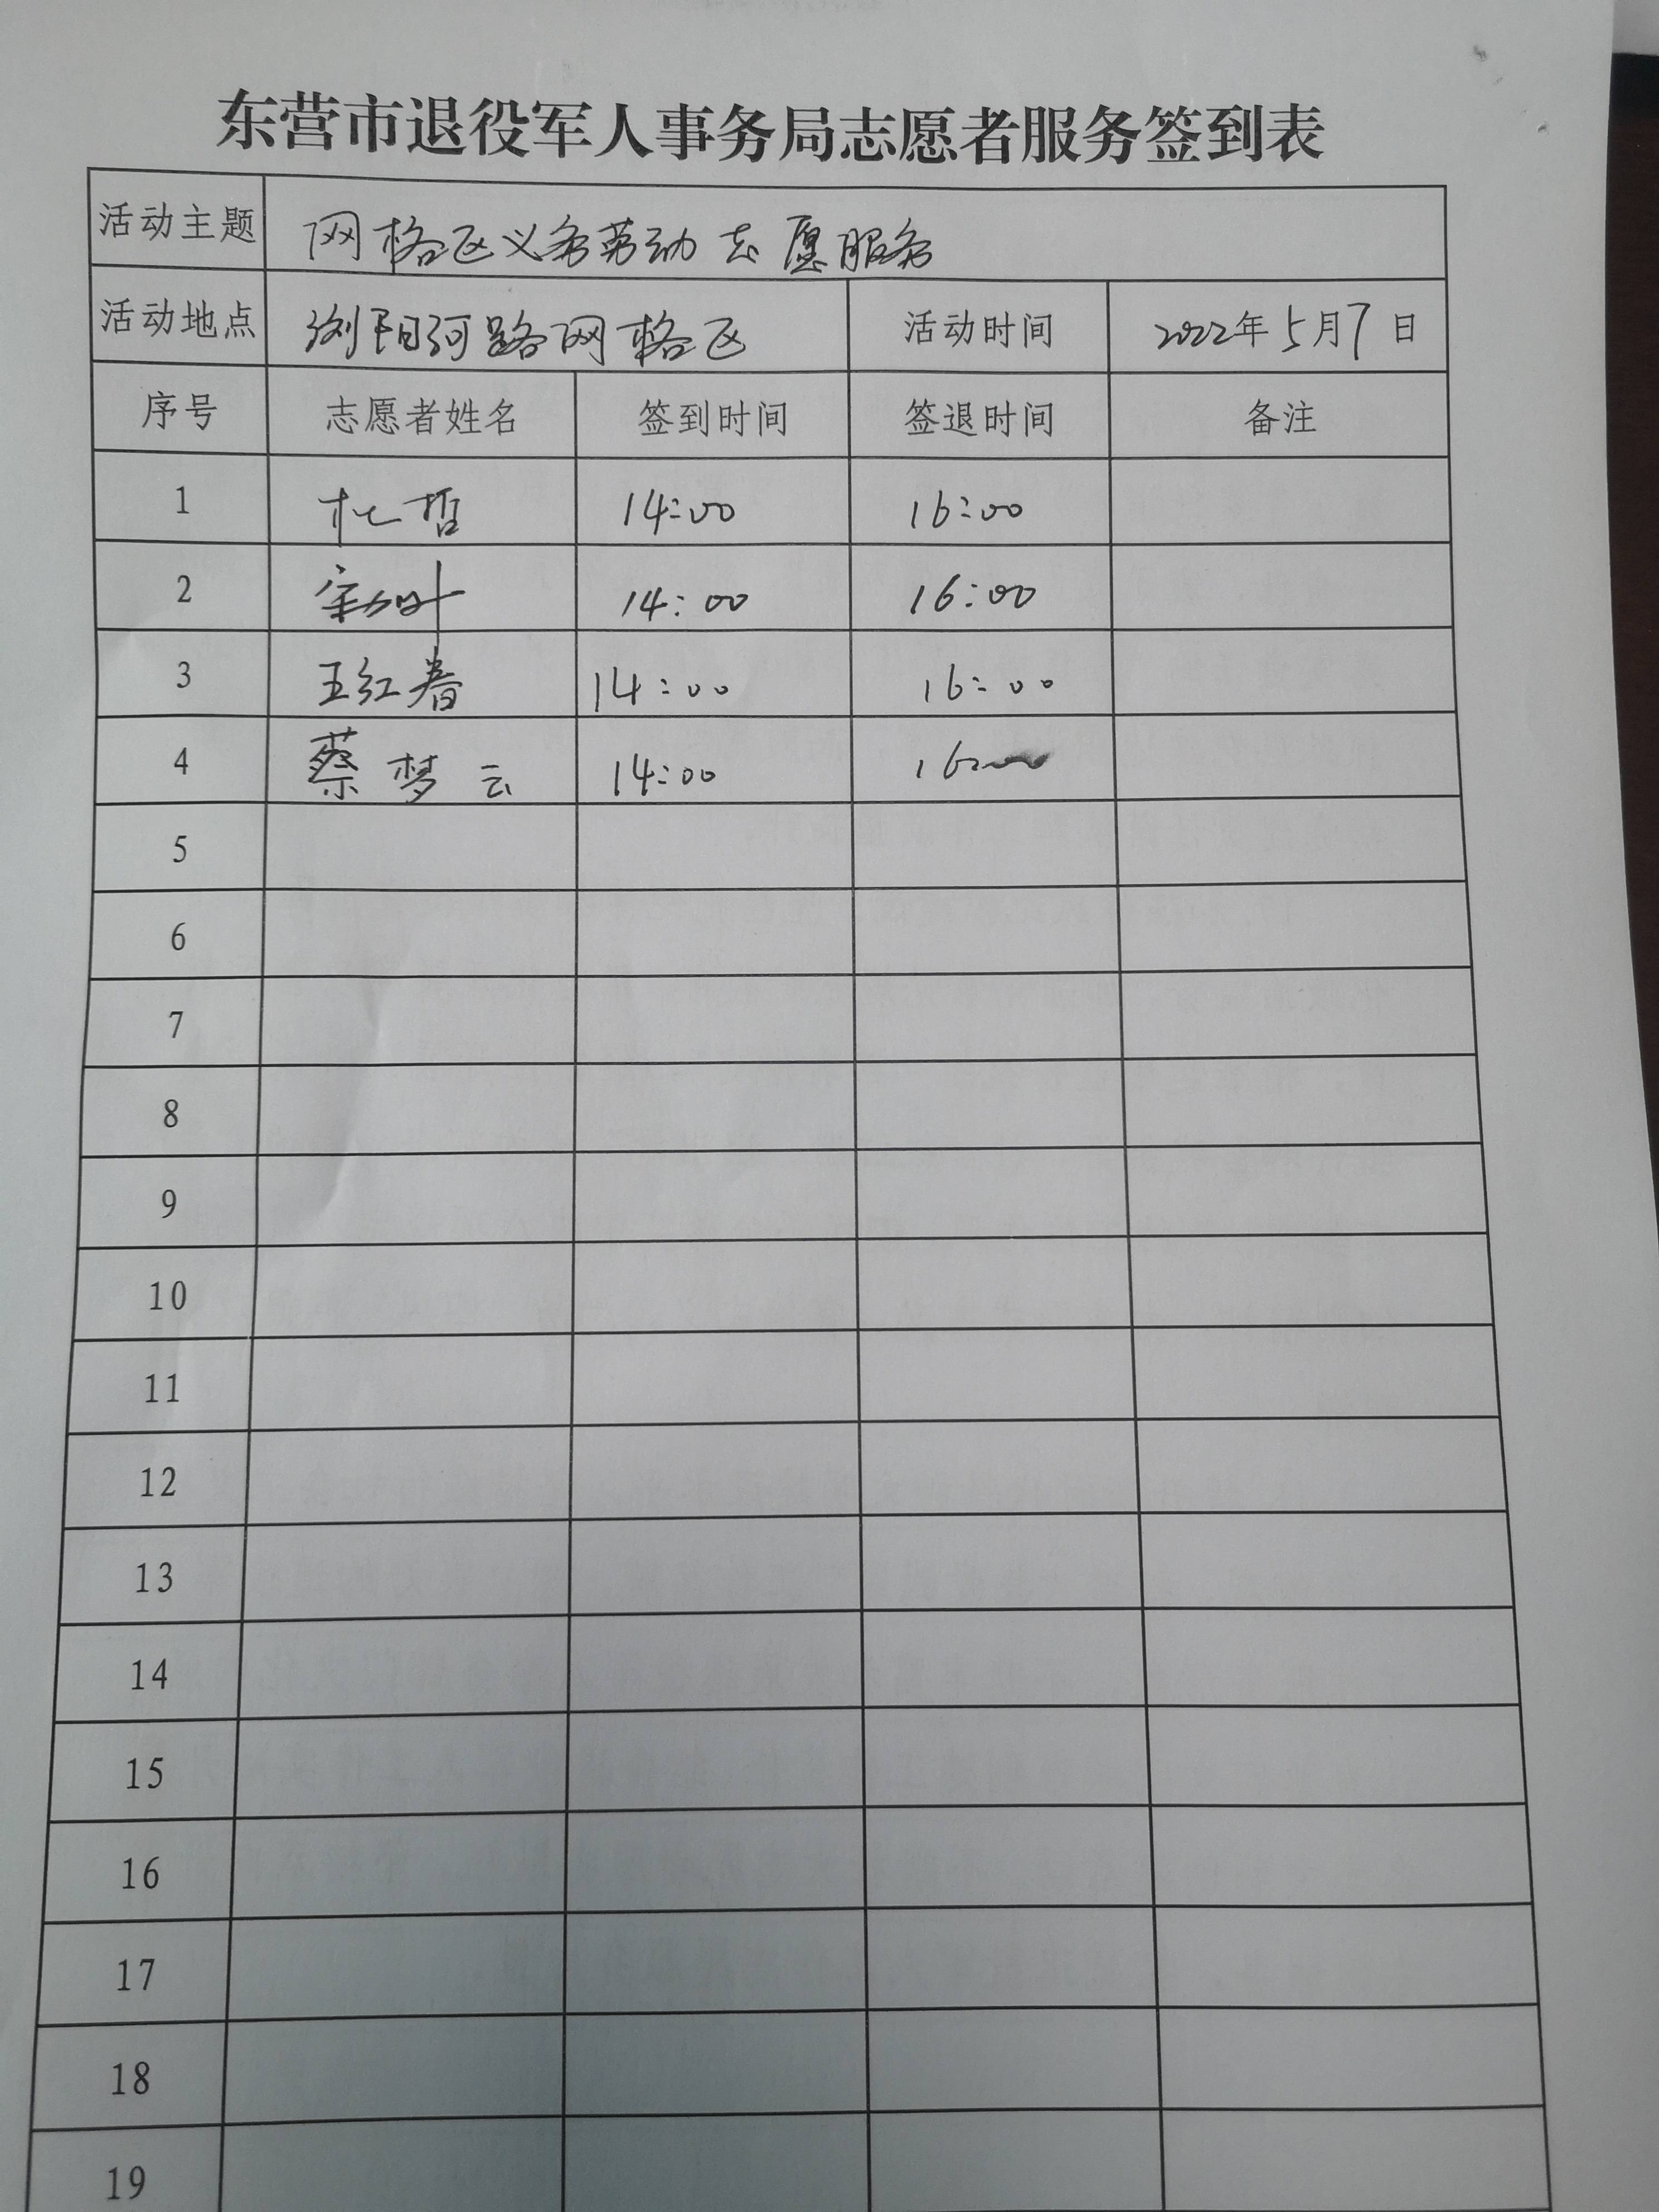 东营市退役军人事务局志愿者服务签到表
活动主题 网格区义务劳动志愿服务
活动地点 浏阳河路网格区 活动时间 2022年5月7日
序号 志愿者姓名 签到时间 签退时间 备注
1 杜哲 14:00 16:00
2 14:00 16:00
3 王红春 14:00 16:00
4 蔡梦云 14:00 16:
5
6
7
8
9
10
11
12
13
14
15
16
17
18
19